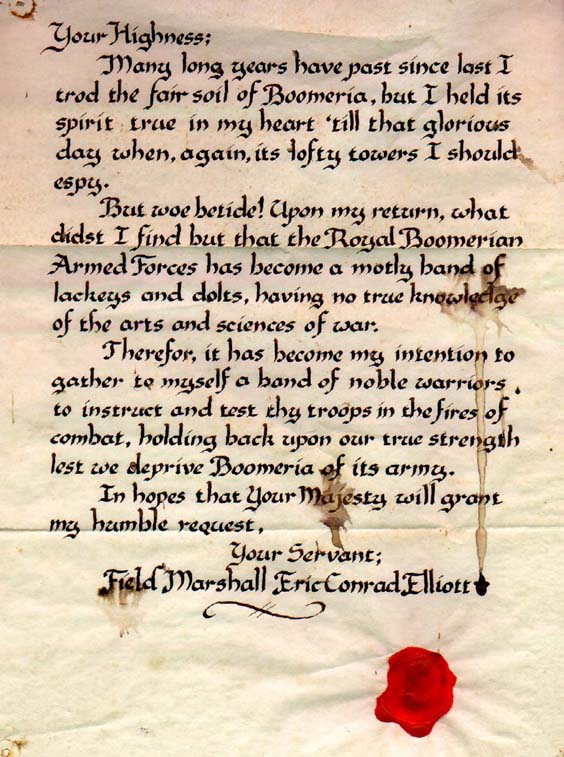 Your Highness;
Many long years have past since last I
trod the fair soil of Boomeria, but I held its
spirit true in my heart 'till that glorious
day when, again, its lofty towers I should
espy.
But woe betide! Upon my return, what
didst I find but that the Royal Boomerian
Armed Forces has become a motly band of
lackeys and dolts, having no true knowledge
of the arts and sciences of war.
Therefor, it has become my intention to
gather to myself a band of noble warriors
to instruct and test thy troops in the fires of
combat, holding back upon our true strength
lest we deprive Boomeria of its army.
In hopes that Your Majesty will grant
my humble request,
Your Servant;
Field Marshall Eric Conrad Elliott